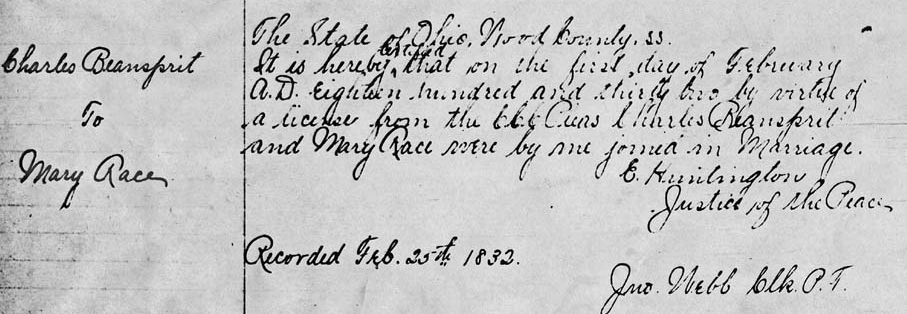 Charles Beansprit
To
Mary Race
The State of Ohio, Wood County, ss.
It is hereby certified that on the first day of February
A.D. Eighteen hundred and thirty two by virtue of
a license from the Clk Charles Beansprit
and Mary Race were by me joined in Marriage.
E. Huntington
Justice of the Peace
Recorded Feb. 25th 1832.
Jno. Webb Clk. P.T.